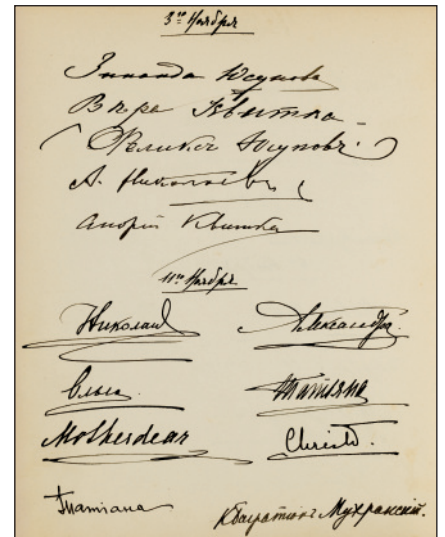 3го Ноября
Зинаида Юсупова
Вѣра Квитка
Феликсъ Юсуповъ
А. Николаевъ
Андрей Квитка
11го Ноября
Николай Александра
Ольга Татьяна
Motherdear Christo.
Татiана КБагратiонъ Мухранскiй.